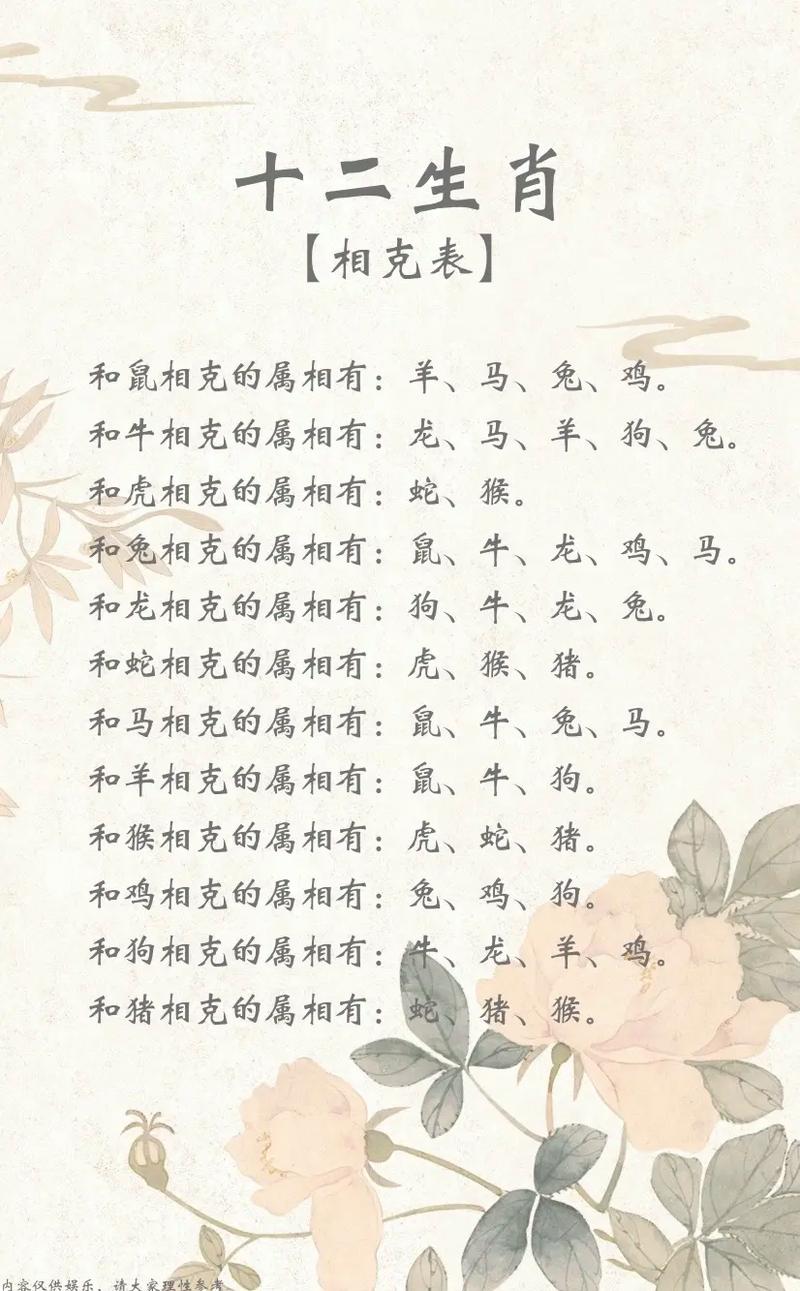 十二生肖
【相克表】
和鼠相克的属相有：羊、马、兔、鸡。
和牛相克的属相有：龙、马、羊、狗、兔。
和虎相克的属相有：蛇、猴。
和兔相克的属相有：鼠、牛、龙、鸡、马。
和龙相克的属相有：狗、牛、龙、兔。
和蛇相克的属相有：虎、猴、猪。
和马相克的属相有：鼠、牛、兔、马。
和羊相克的属相有：鼠、牛、狗。
和猴相克的属相有：虎、蛇、猪。
和鸡相克的属相有：兔、鸡、狗。
和狗相克的属相有：牛、龙、羊、鸡。
和猪相克的属相有：蛇、猪、猴。
内容仅供娱乐，请大家理性参考